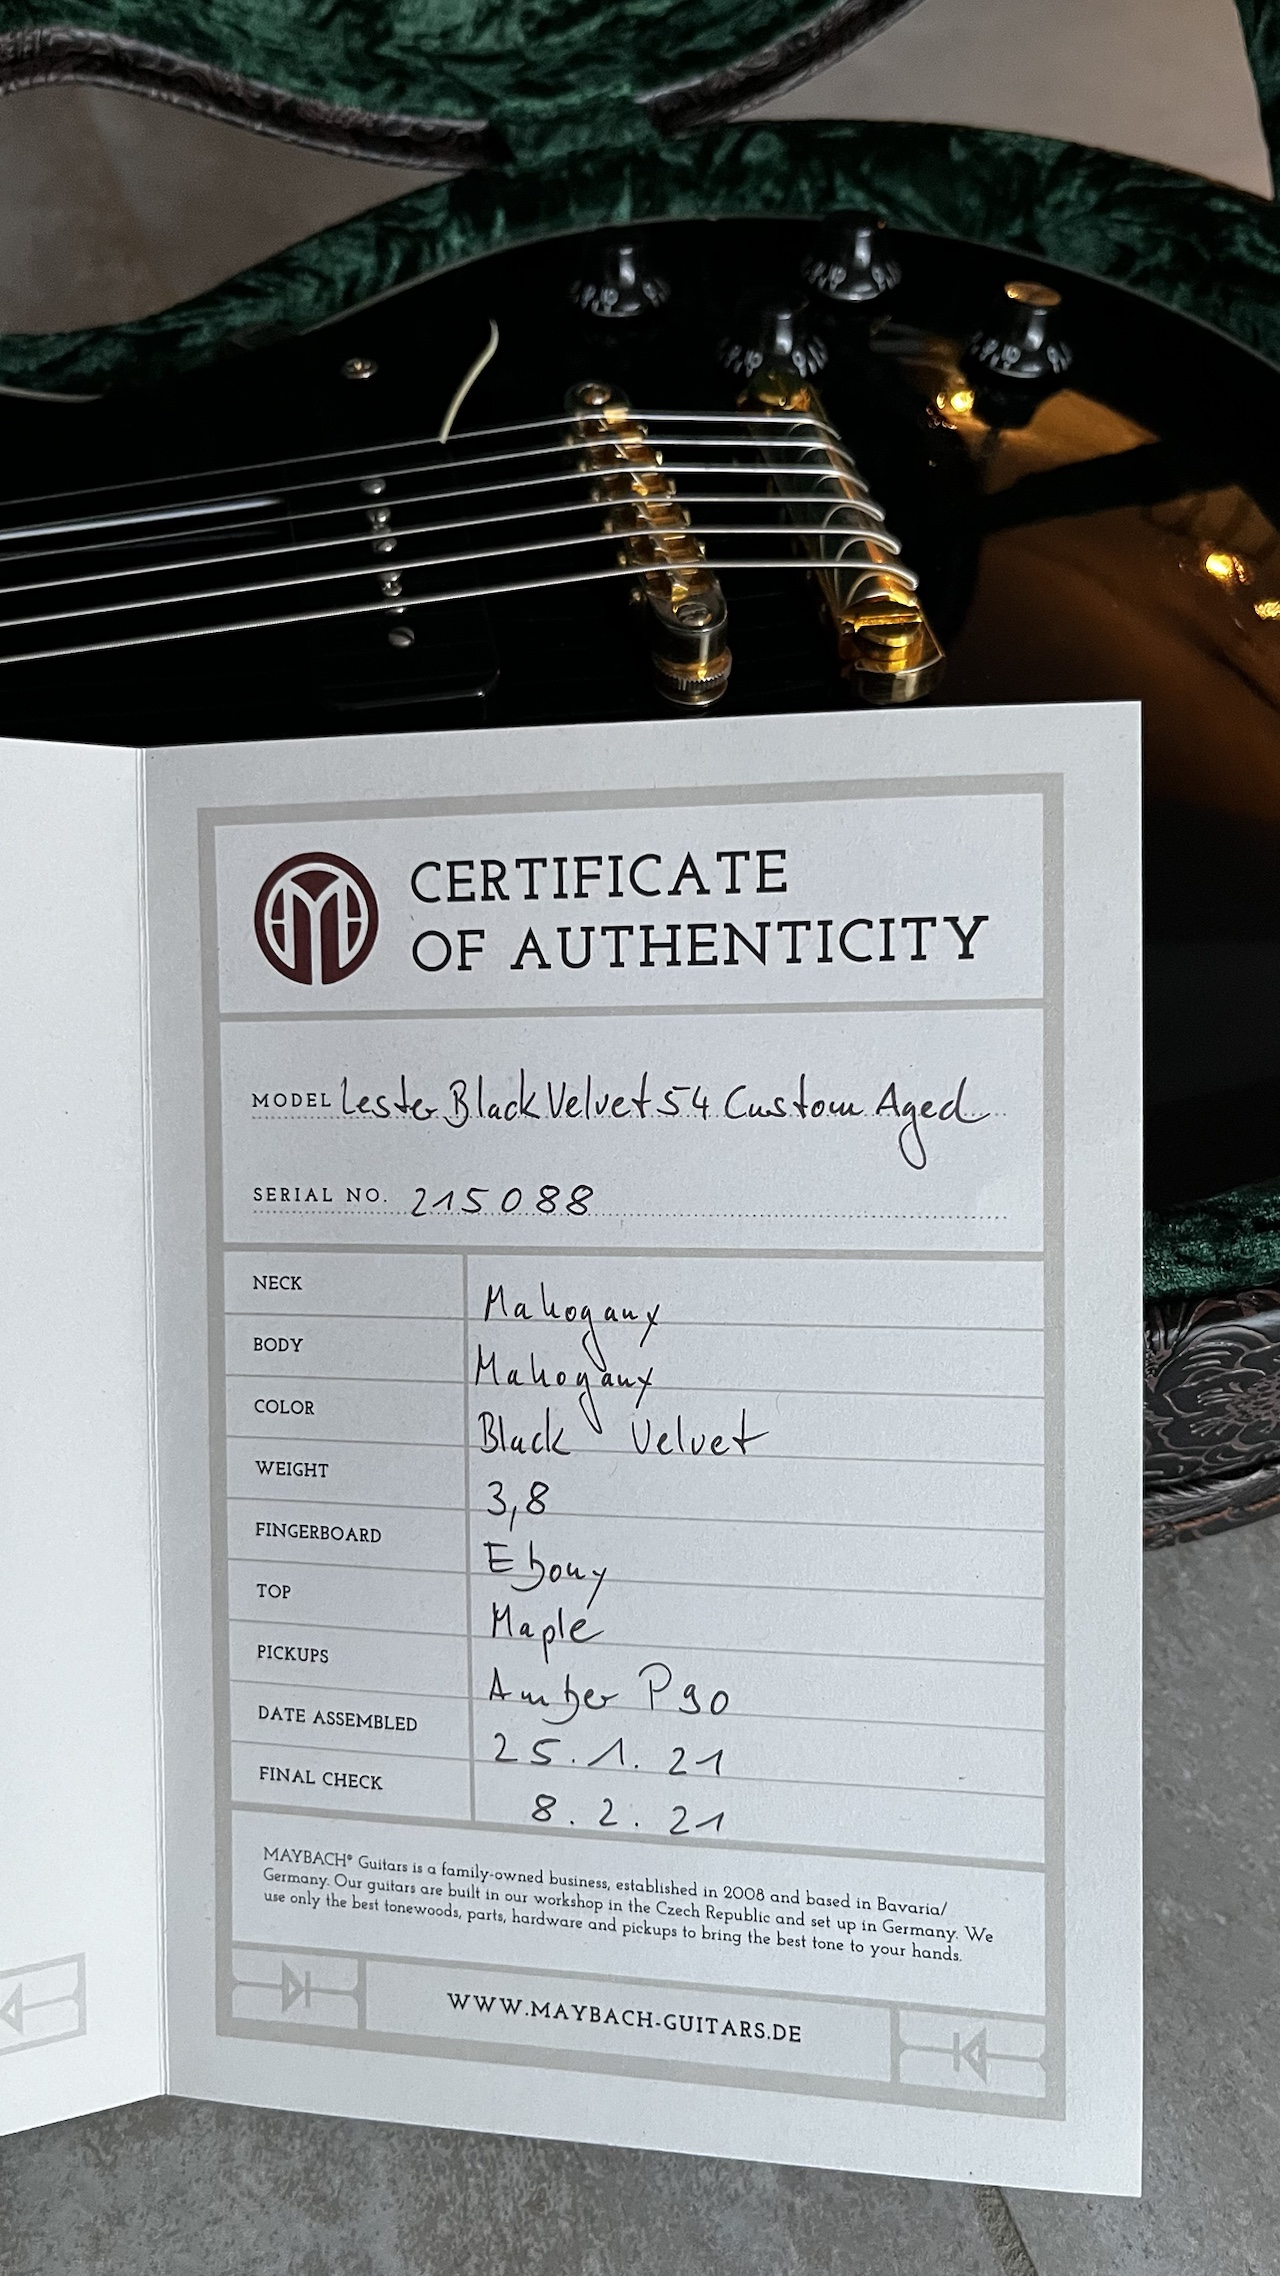 CERTIFICATE
OF AUTHENTICITY
MODEL Lester Black Velvet 54 Custom Aged
SERIAL NO. 215088
NECK Mahogany
BODY Mahogany
COLOR Black Velvet
WEIGHT 3,8
FINGERBOARD Ebony
TOP Maple
PICKUPS Amber P90
DATE ASSEMBLED 25.1.21
FINAL CHECK 8.2.21
MAYBACH® Guitars is a family-owned business, established in 2008 and based in Bavaria/
Germany. Our guitars are built in our workshop in the Czech Republic and set up in Germany. We
use only the best tonewoods, parts, hardware and pickups to bring the best tone to your hands.
WWW.MAYBACH-GUITARS.DE